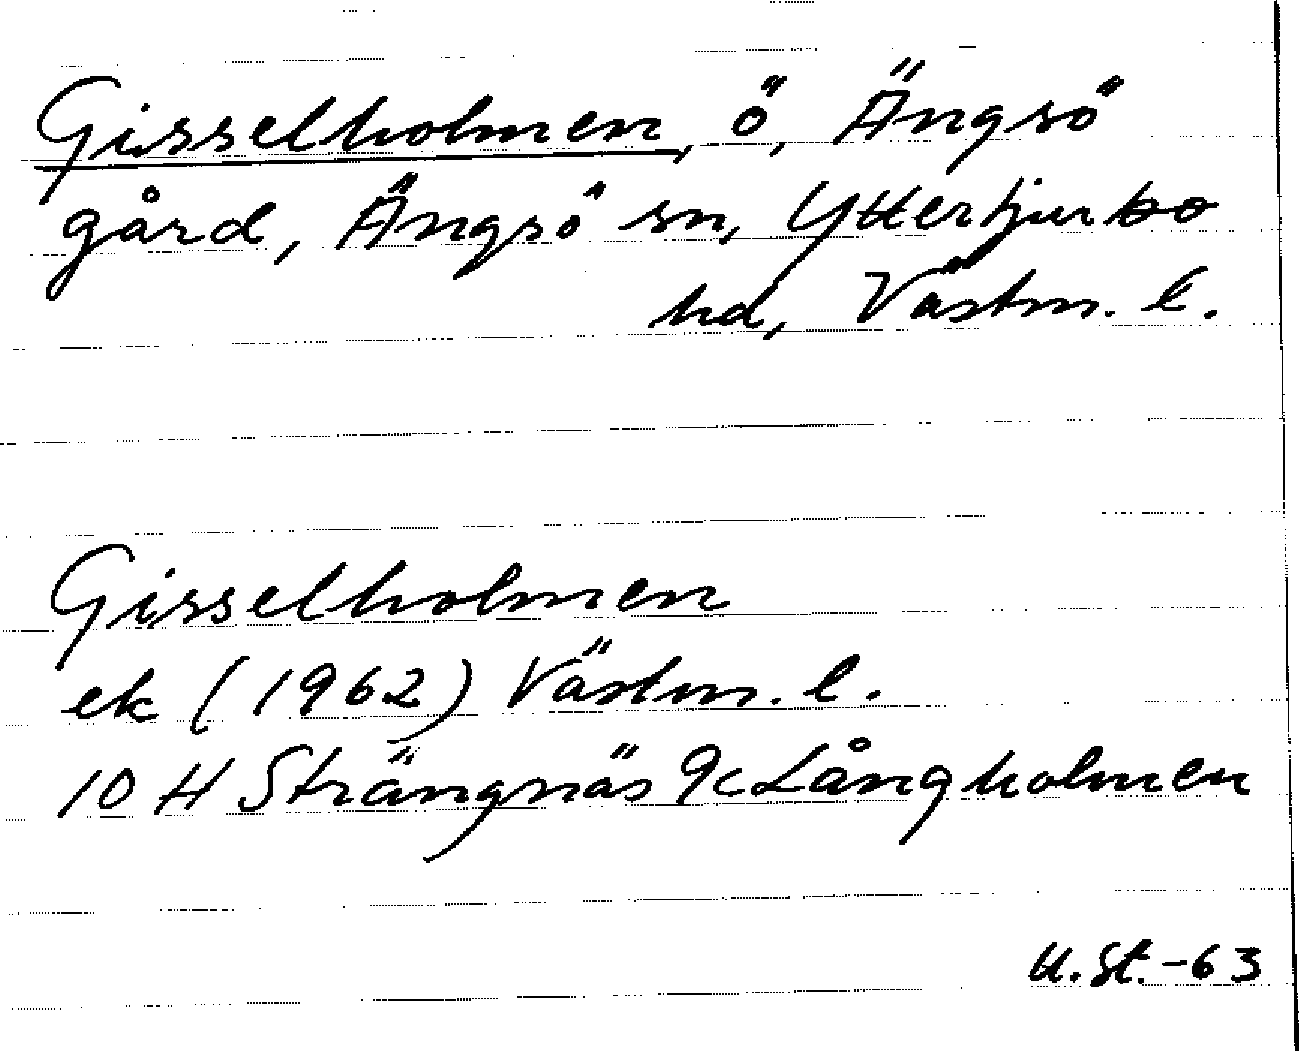 Gisselholmen, ö, Ängsö
gård, Ängsö sn, Yttertjurbo
hd, Västm. l.
Gisselholmen
ek (1962) Västm. l.
10 H Strängnäs 9c Långholmen
U.St.-63